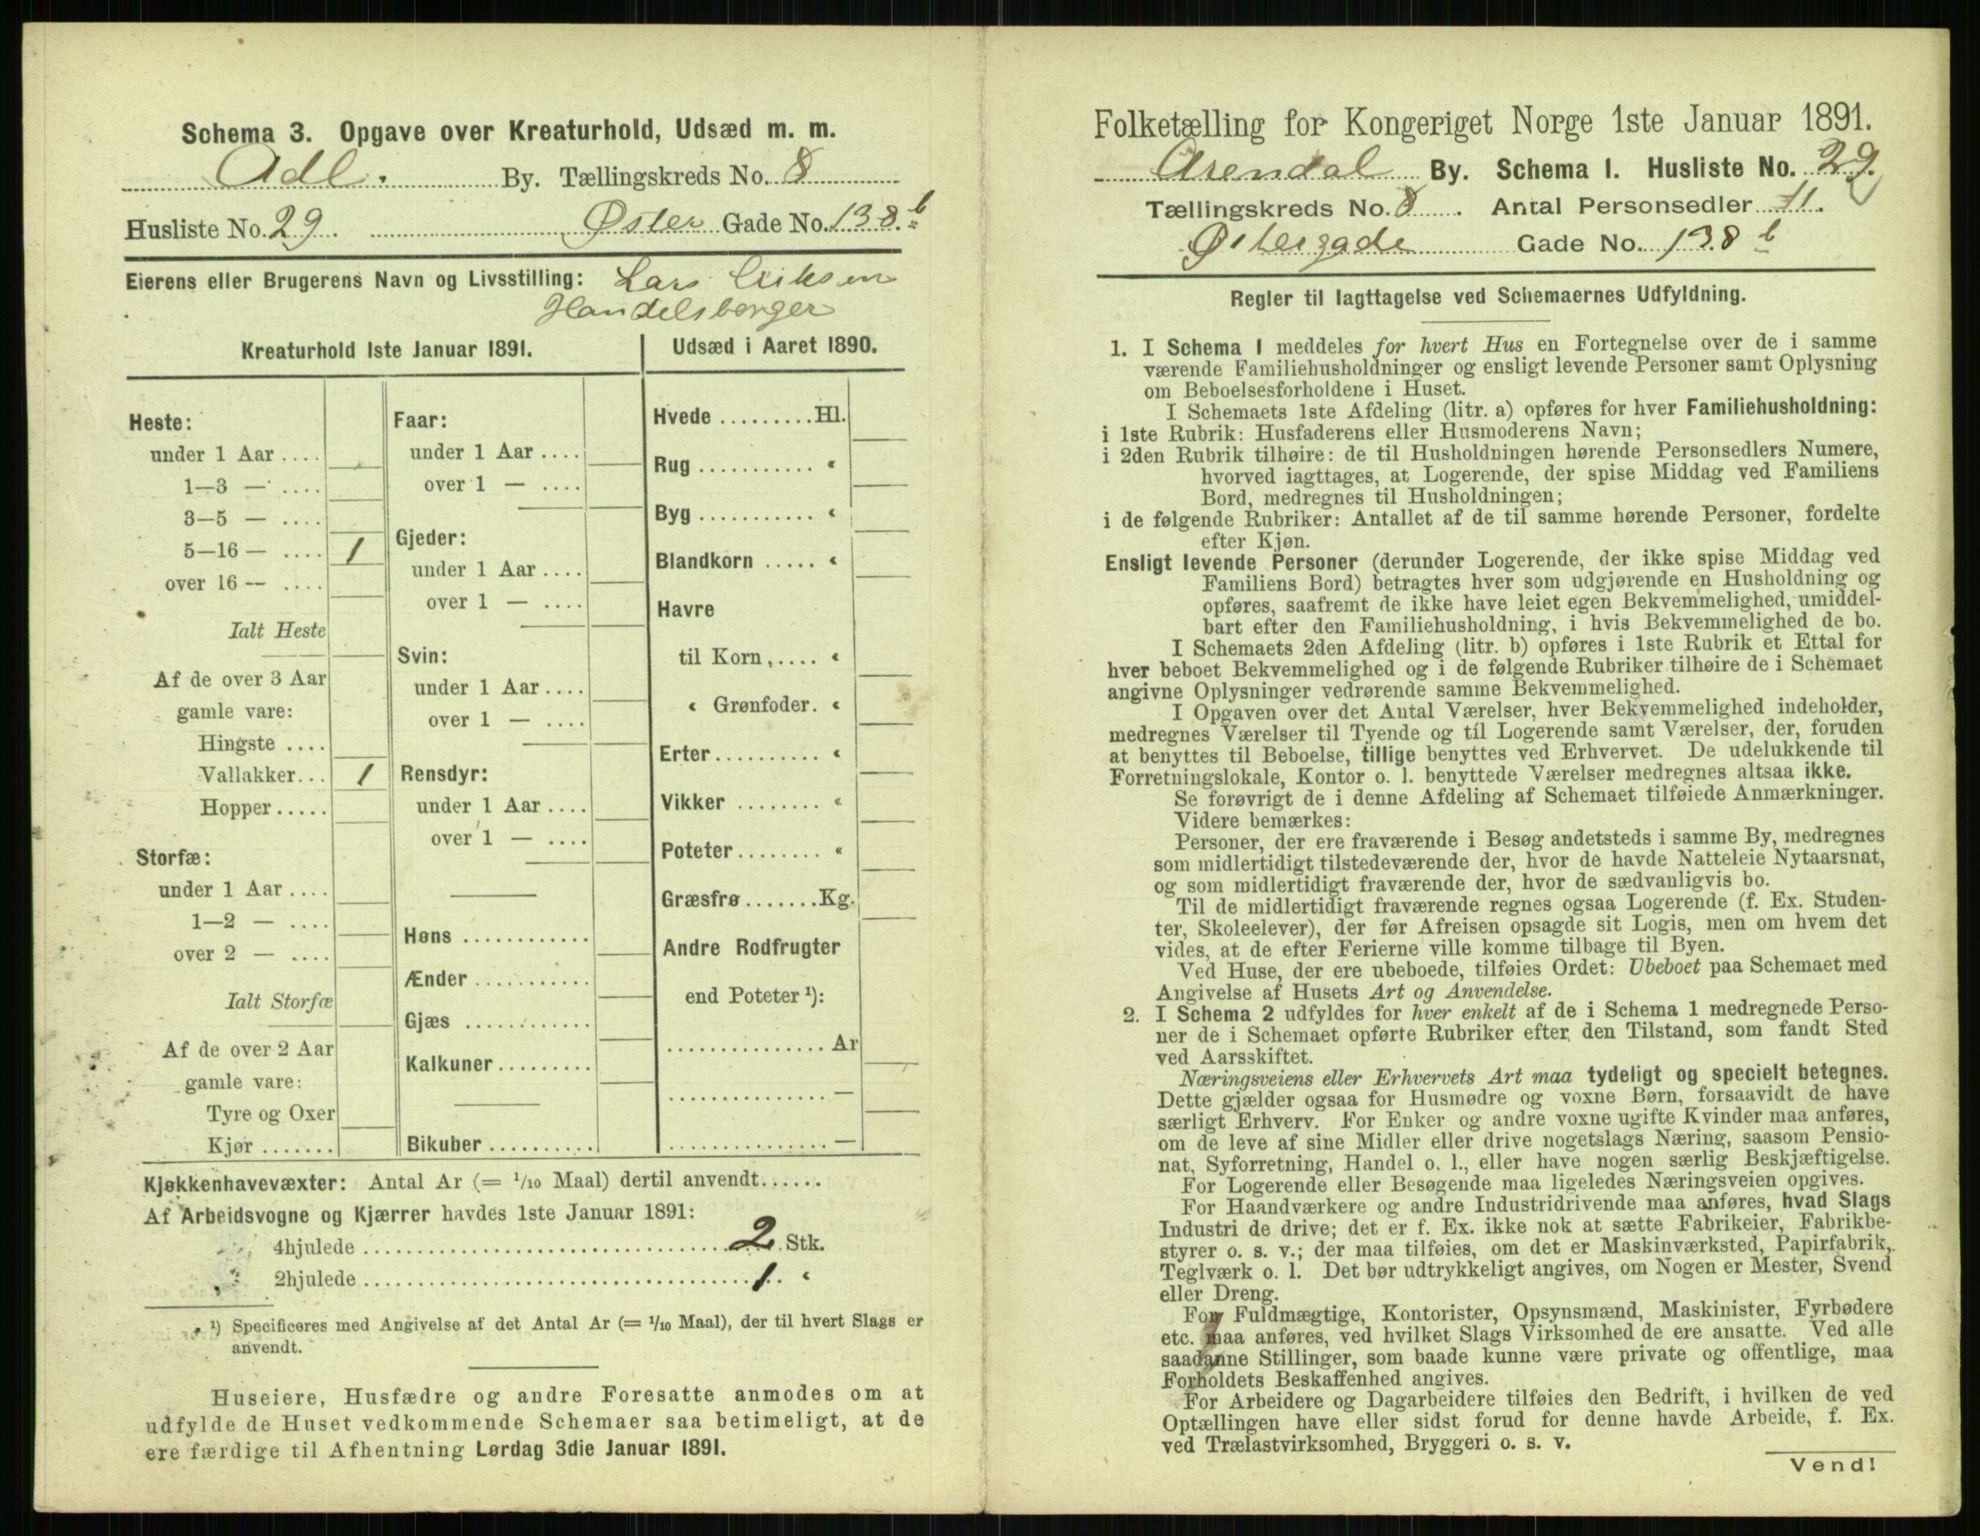 Schema 3. Opgave over Kreaturhold, Udsæd m. m.
Adl. By. Tællingskreds No. 8
Husliste No. 29. Øster Gade No. 138 b
Eierens eller Brugerens Navn og Livsstilling: Lars Eriksen
Handelsborger
Kreaturhold 1ste Januar 1891.
Heste:
under 1 Aar ....
1—3 — ....
3—5 — ....
5—16 — .... 1
over 16 — ....
Ialt Heste
Af de over 3 Aar
gamle vare:
Hingste ....
Vallakker... 1
Hopper.....
Storfæ:
under 1 Aar ....
1—2 — ....
over 2 — ....
Ialt Storfæ
Af de over 2 Aar
gamle vare:
Tyre og Oxer
Kjør .......
Faar:
under 1 Aar ....
over 1 — ....
Gjeder:
under 1 Aar ....
over 1 — ....
Svin:
under 1 Aar ....
over 1 — ....
Rensdyr:
under 1 Aar ....
over 1 — ....
Høns ............
Ænder ...........
Gjæs ............
Kalkuner.........
Bikuber ..........
Udsæd i Aaret 1890.
Hvede .........Hl.
Rug ........... “
Byg ........... “
Blandkorn ..... “
Havre
til Korn, .... “
“ Grønfoder. “
Erter.......... “
Vikker ........ “
Poteter........ “
Græsfrø .......Kg.
Andre Rodfrugter
end Poteter ¹):
............... Ar
............... —
............... —
Kjøkkenhavevæxter: Antal Ar (= 1/10 Maal) dertil anvendt......
Af Arbeidsvogne og Kjærrer havdes 1ste Januar 1891:
4hjulede .................................... 2 Stk.
2hjulede .................................... 1 “
¹) Specificeres med Angivelse af det Antal Ar (= 1/10 Maal), der til hvert Slags er
anvendt.
Huseiere, Husfædre og andre Foresatte anmodes om at
udfylde de Huset vedkommende Schemaer saa betimeligt, at de
ere færdige til Afhentning Lørdag 3die Januar 1891.
Folketælling for Kongeriget Norge 1ste Januar 1891.
Arendal By. Schema 1. Husliste No. 29.
Tællingskreds No. 8. Antal Personsedler 11.
Østergade Gade No. 138 b
Regler til Iagttagelse ved Schemaernes Udfyldning.
1. I Schema 1 meddeles for hvert Hus en Fortegnelse over de i samme
værende Familiehusholdninger og ensligt levende Personer samt Oplysning
om Beboelsesforholdene i Huset.
I Schemaets 1ste Afdeling (litr. a) opføres for hver Familiehusholdning:
i 1ste Rubrik: Husfaderens eller Husmoderens Navn;
i 2den Rubrik tilhøire: de til Husholdningen hørende Personsedlers Numere,
hvorved iagttages, at Logerende, der spise Middag ved Familiens
Bord, medregnes til Husholdningen;
i de følgende Rubriker: Antallet af de til samme hørende Personer, fordelte
efter Kjøn.
Ensligt levende Personer (derunder Logerende, der ikke spise Middag ved
Familiens Bord) betragtes hver som udgjørende en Husholdning og
opføres, saafremt de ikke have leiet egen Bekvemmelighed, umiddel-
bart efter den Familiehusholdning, i hvis Bekvemmelighed de bo.
I Schemaets 2den Afdeling (litr. b) opføres i 1ste Rubrik et Ettal for
hver beboet Bekvemmelighed og i de følgende Rubriker tilhøire de i Schemaet
angivne Oplysninger vedrørende samme Bekvemmelighed.
I Opgaven over det Antal Værelser, hver Bekvemmelighed indeholder,
medregnes Værelser til Tyende og til Logerende samt Værelser, der, foruden
at benyttes til Beboelse, tillige benyttes ved Erhvervet. De udelukkende til
Forretningslokale, Kontor o. l. benyttede Værelser medregnes altsaa ikke.
Se forøvrigt de i denne Afdeling af Schemaet tilføiede Anmærkninger.
Videre bemærkes:
Personer, der ere fraværende i Besøg andetsteds i samme By, medregnes
som midlertidigt tilstedeværende der, hvor de havde Natteleie Nytaarsnat,
og som midlertidigt fraværende der, hvor de sædvanligvis bo.
Til de midlertidigt fraværende regnes ogsaa Logerende (f. Ex. Studen-
ter, Skoleelever), der før Afreisen opsagde sit Logis, men om hvem det
vides, at de efter Ferierne ville komme tilbage til Byen.
Ved Huse, der ere ubeboede, tilføies Ordet: Ubeboet paa Schemaet med
Angivelse af Husets Art og Anvendelse.
2. I Schema 2 udfyldes for hver enkelt af de i Schema 1 medregnede Perso-
ner de i Schemaet opførte Rubriker efter den Tilstand, som fandt Sted
ved Aarsskiftet.
Næringsveiens eller Erhvervets Art maa tydeligt og specielt betegnes.
Dette gjælder ogsaa for Husmødre og voxne Børn, forsaavidt de have
særligt Erhverv. For Enker og andre voxne ugifte Kvinder maa anføres,
om de leve af sine Midler eller drive nogetslags Næring, saasom Pensio-
nat, Syforretning, Handel o. l., eller have nogen særlig Beskjæftigelse.
For Logerende eller Besøgende maa ligeledes Næringsveien opgives.
For Haandværkere og andre Industridrivende maa anføres, hvad Slags
Industri de drive; det er f. Ex. ikke nok at sætte Fabrikeier, Fabrikbe-
styrer o. s. v.; der maa tilføies, om det er Maskinværksted, Papirfabrik,
Teglværk o. l. Det bør udtrykkeligt angives, om Nogen er Mester, Svend
eller Dreng.
For Fuldmægtige, Kontorister, Opsynsmænd, Maskinister, Fyrbødere
etc. maa anføres, ved hvilket Slags Virksomhed de ere ansatte. Ved alle
saadanne Stillinger, som baade kunne være private og offentlige, maa
Forholdets Beskaffenhed angives.
For Arbeidere og Dagarbeidere tilføies den Bedrift, i hvilken de ved
Optællingen have eller sidst forud for denne havde Arbeide, f. Ex.
ved Trælastvirksomhed, Bryggeri o. s. v.
Vend!